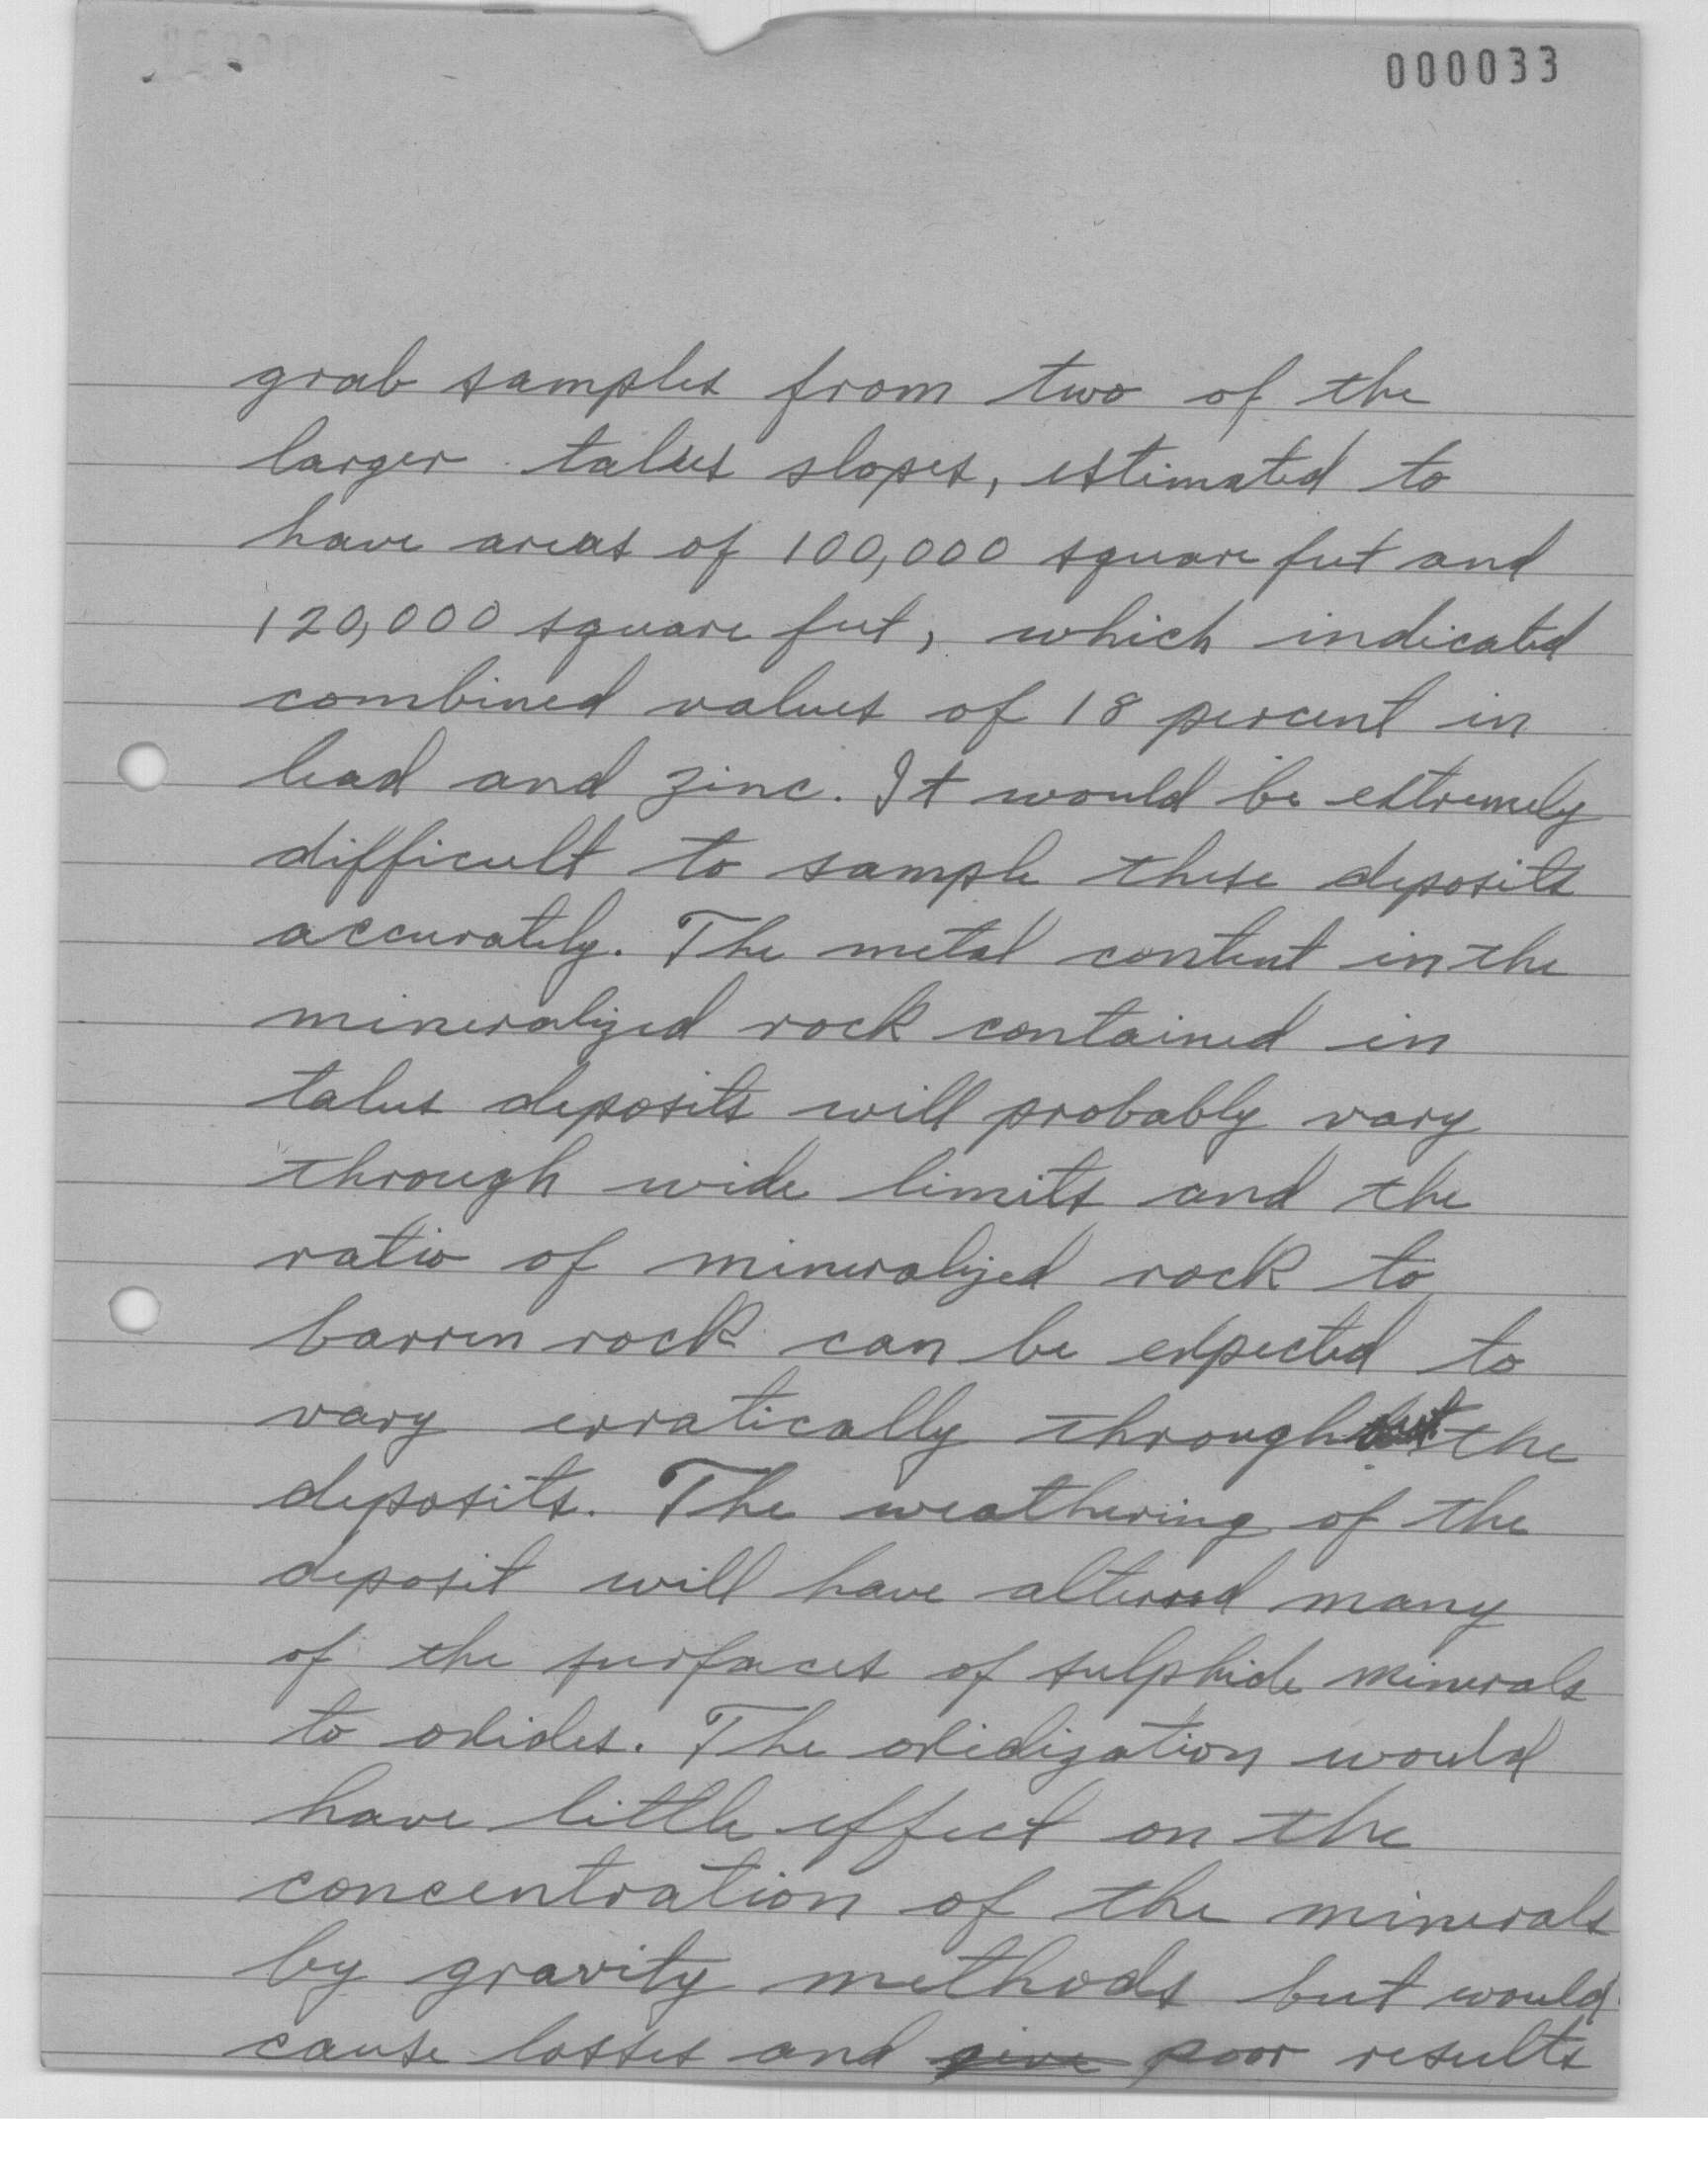 000033
grab samples from two of the
larger talus slopes, estimated to
have areas of 100,000 square feet and
120,000 square feet, which indicated
combined values of 18 percent in
lead and zinc. It would be extremely
difficult to sample these deposits
accurately. The metal content in the
mineralized rock contained in
talus deposits will probably vary
through wide limits and the
ratio of mineralized rock to
barren rock can be expected to
vary erratically throughout the
deposits. The weathering of the
deposit will have altered many
of the surfaces of sulphide minerals
to oxides. The oxidization would
have little effect on the
concentration of the minerals
by gravity methods but would
cause losses and give poor results